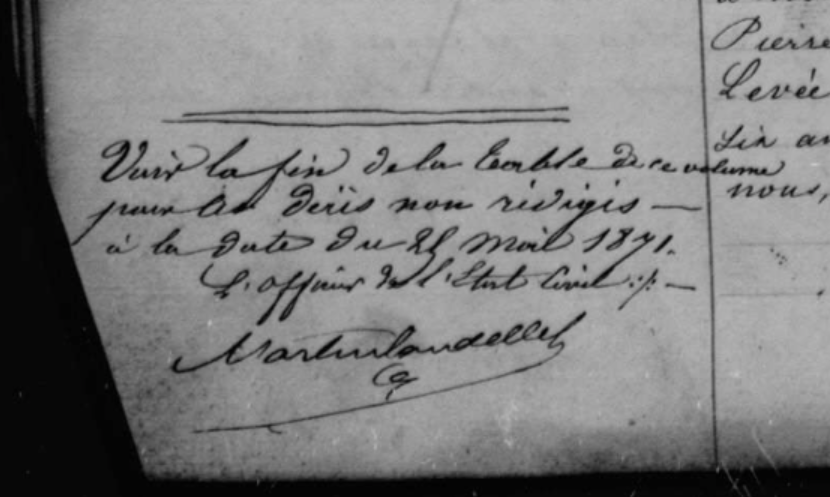 Voir la fin de la table de ce volume
pour les décès non rédigés —
à la date du 25 Mai 1871.
L'officier de l'Etat Civil ./. —
Martinlandellet
Pierre
Levée
six an
nous,